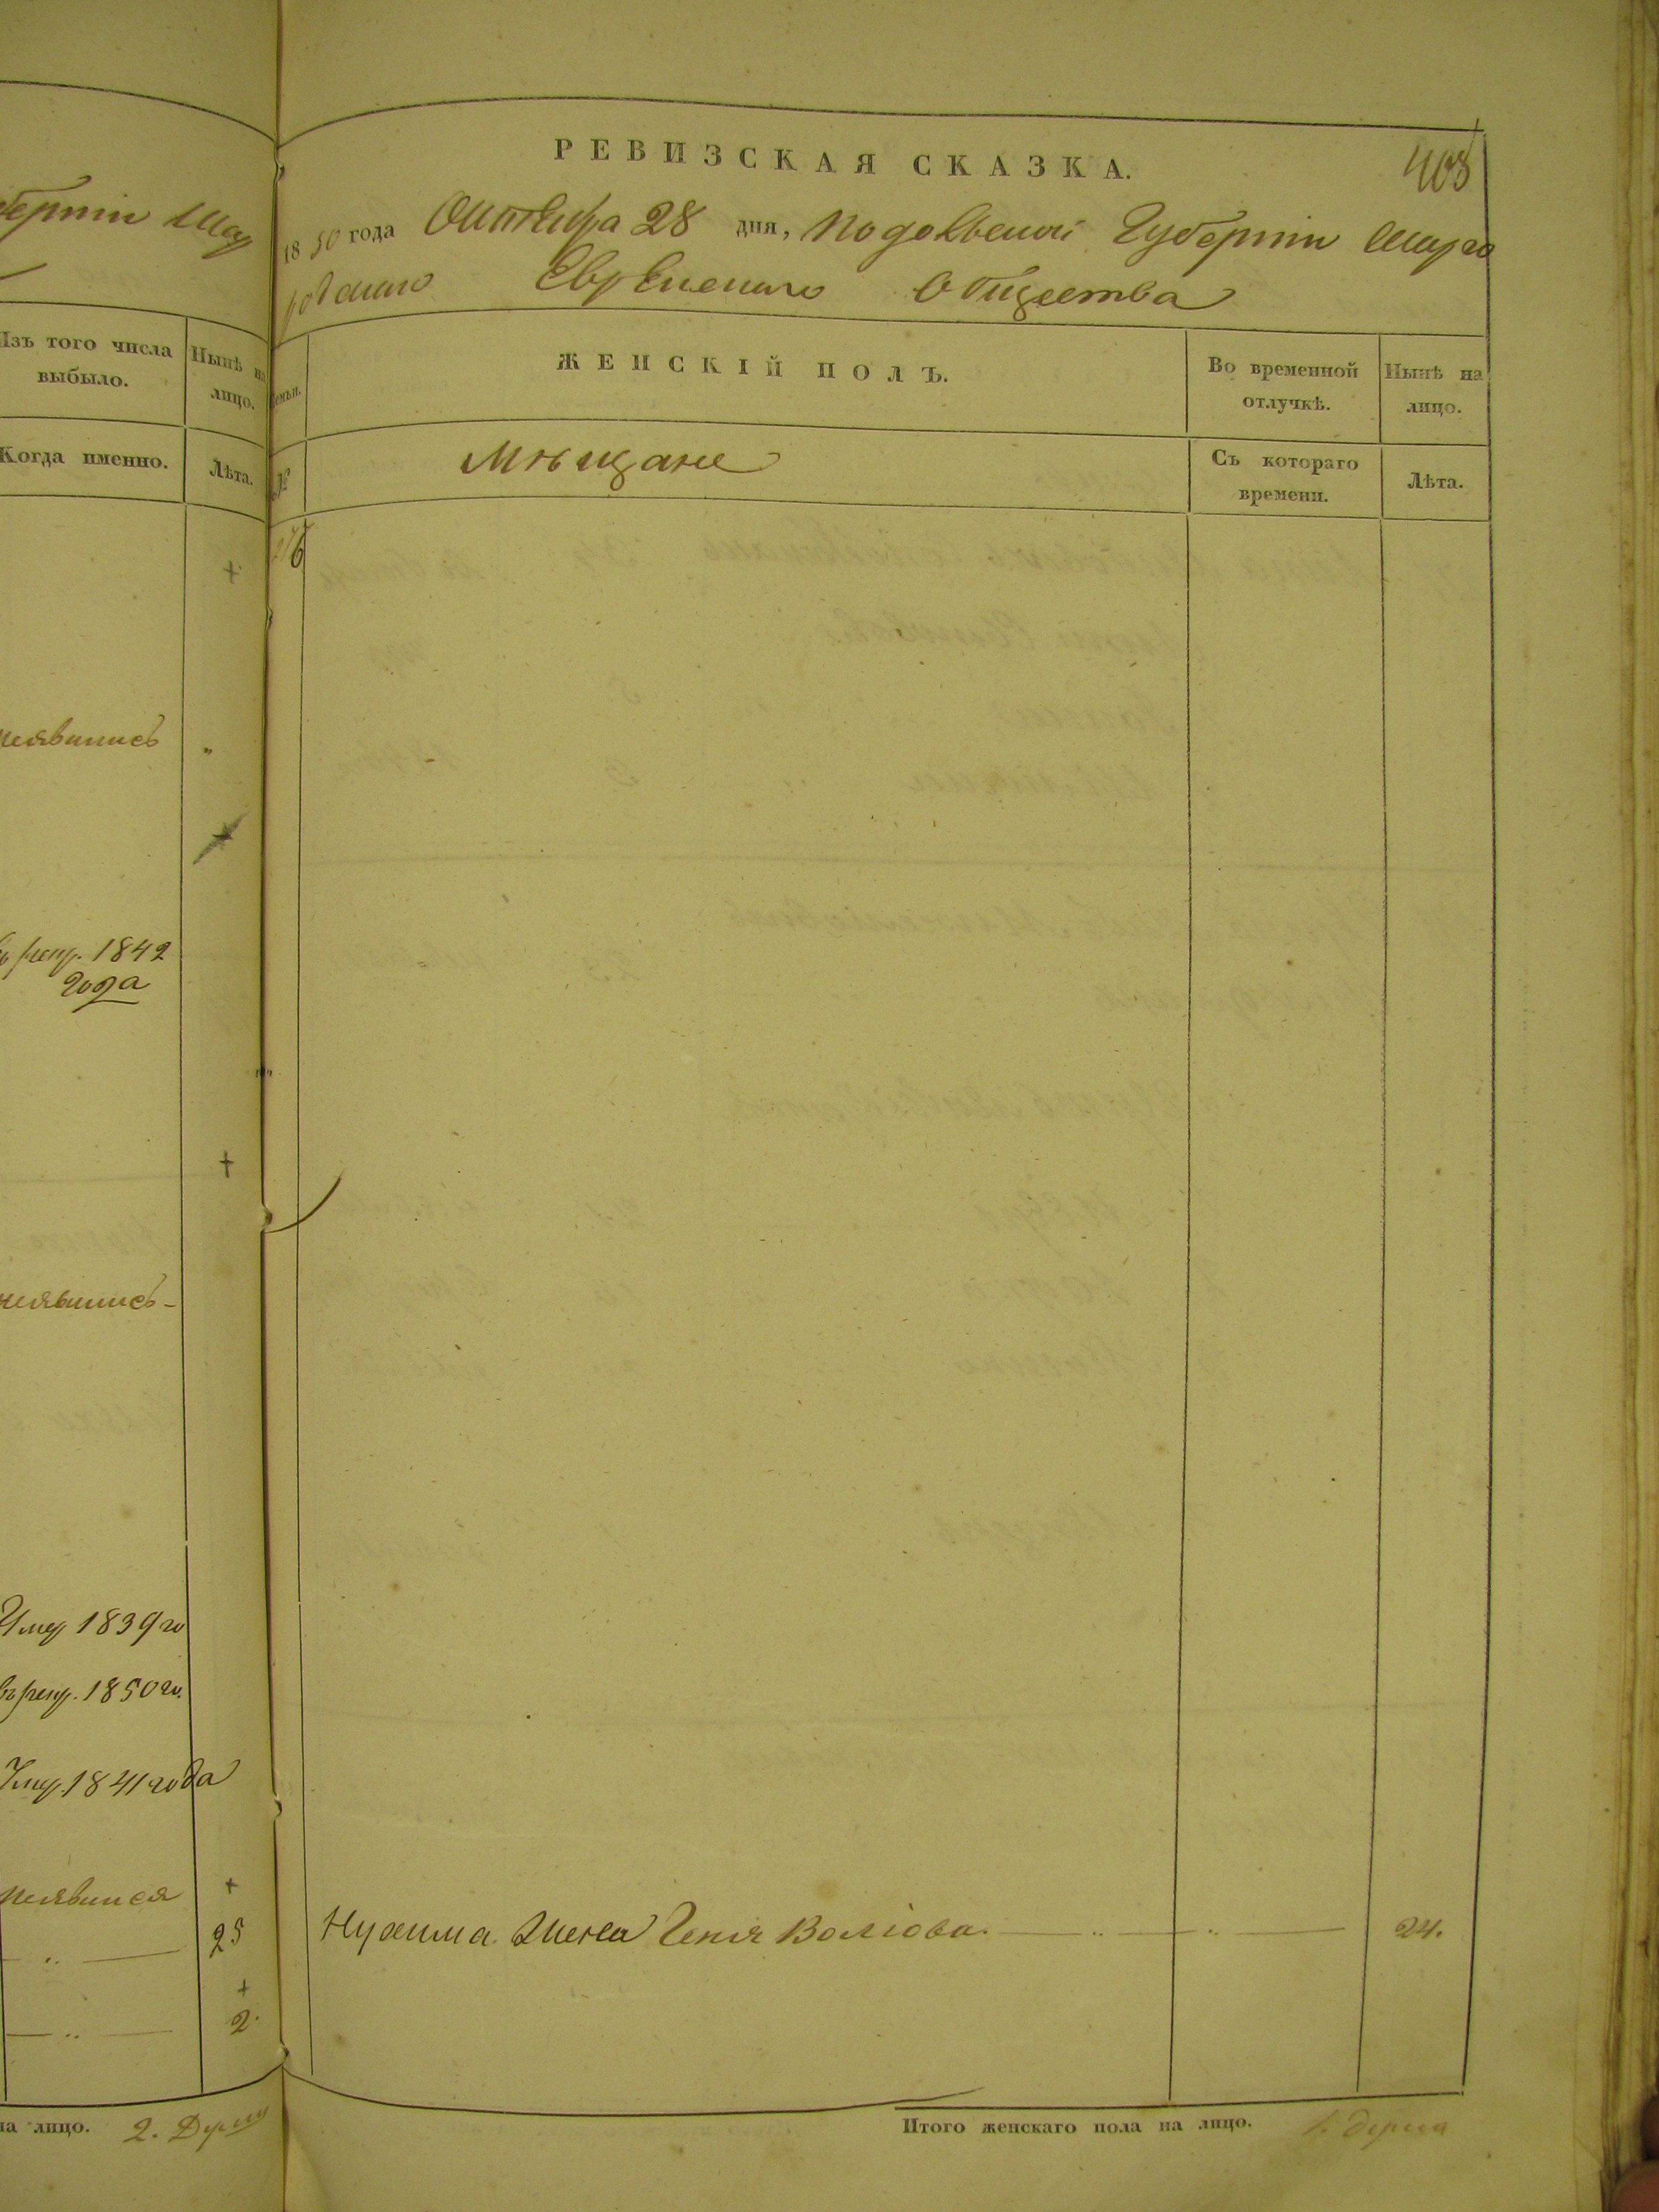 берніи Шар
Изъ того числа выбыло.
Нынѣ на лицо.
Когда именно.
Лѣта.
неявились
в рекр. 1842
года
неявились
Умер 1839 го
въ рекр. 1850 го.
Умер. 1841 года
неявился
25
2
на лицо. 2. Души
РЕВИЗСКАЯ СКАЗКА.
403
1850 года Октября 28 дня, Подольской Губерніи Шарго
родскаго Еврейскаго Общества
ЖЕНСКІЙ ПОЛЪ.
Во временной отлучкѣ.
Нынѣ на лицо.
семьи.
№
Мѣщане
Съ котораго времени.
Лѣта.
276
Нухима жена Геня Волiова. 24.
Итого женскаго пола на лицо. 1. душа